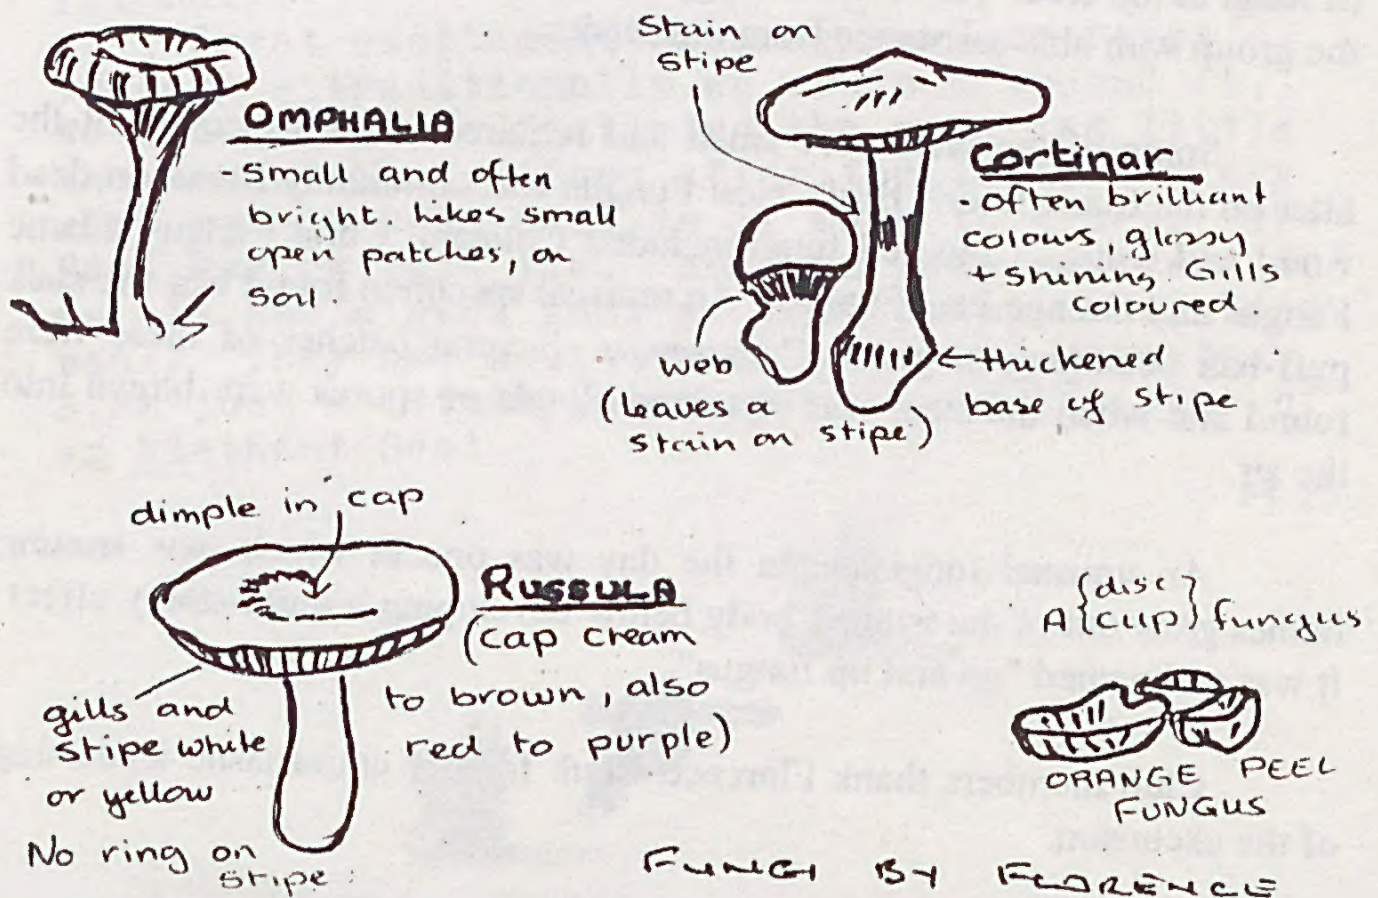 OMPHALIA
- Small and often
bright. Likes small
open patches, on
soil.
Stain on
stipe
Cortinar
- often brilliant
colours, glossy
+ shining. Gills
coloured
web
(leaves a
stain on stipe)
thickened
base of stipe
dimple in cap
RUSSULA
(cap cream
to brown, also
red to purple)
gills and
stipe white
or yellow
No ring on
stipe.
A {disc} fungus
{cup}
ORANGE PEEL
FUNGUS
FUNGI BY FLORENCE